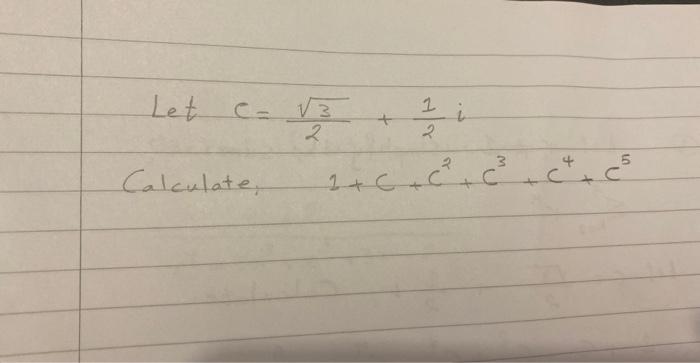 Let c = √3/2 + 1/2 i
Calculate, 1 + C + C² + C³ + C⁴ + C⁵